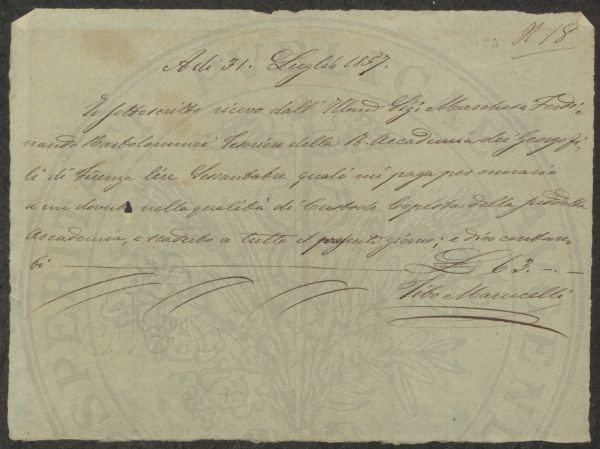 N 18
A dì 31. Luglio 1857.
Io sottoscritto ricevo dall' Illmo Sigr Marchese Ferdi-
nando Bartolommei Tesoriere della R. Accademia dei Georgofi-
li di Firenze lire Sessantatre quali mi paga per onorario
a me dovuto nella qualità di Custode Copista della suddetta
Accademia, e scaduto a tutto il presente giorno; e dico contan-
ti £ 63.-.-
Tito Marucelli